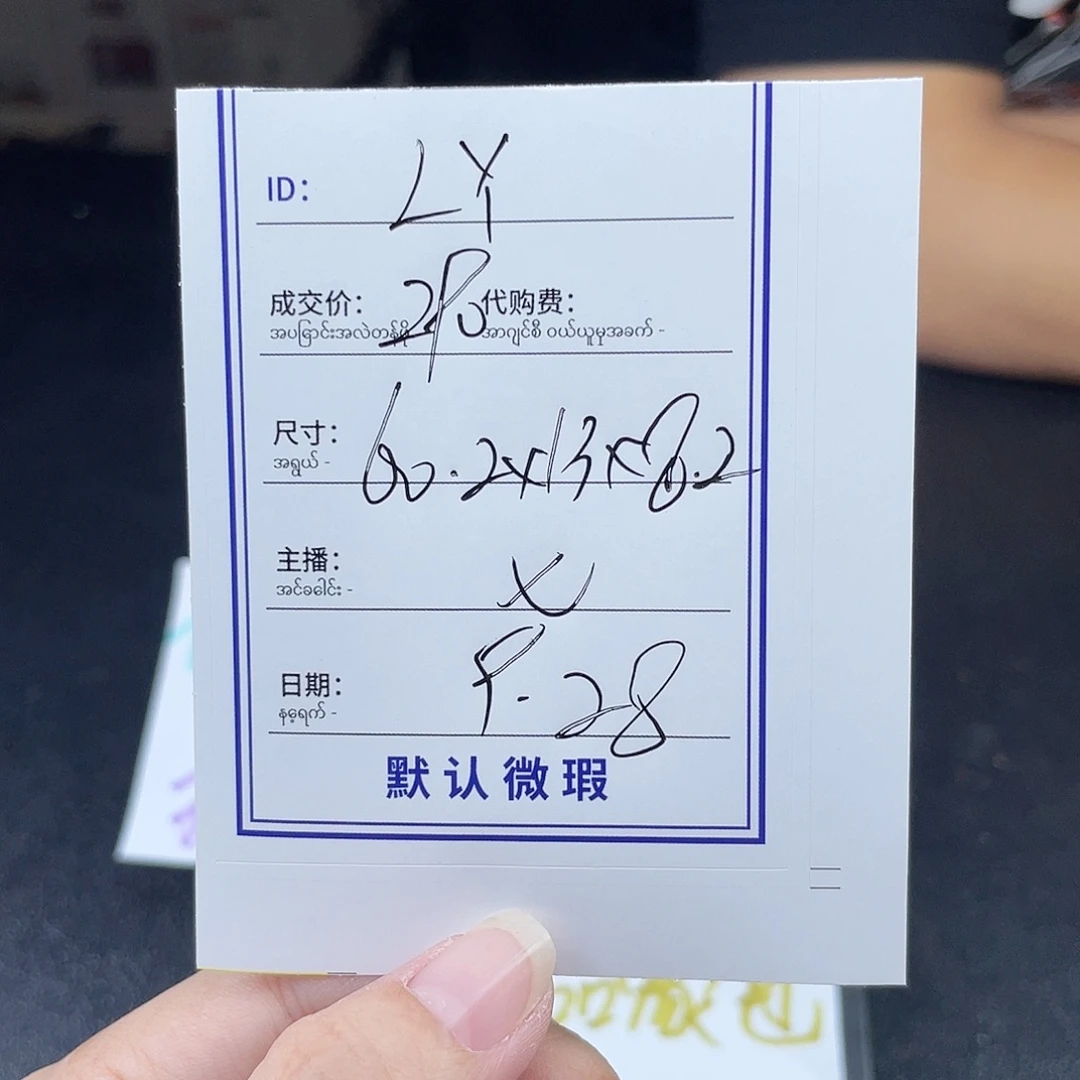 ID: LY
成交价: 290 代购费:
အပြောင်းအလဲတန်ဖိုး အာဂျင်စီ ဝယ်ယူမှုအခက် -
尺寸: 60.2x13x8.2
အရွယ် -
主播: X
အင်ခေါင်း -
日期: 9.28
နေ့ရက် -
默认微瑕